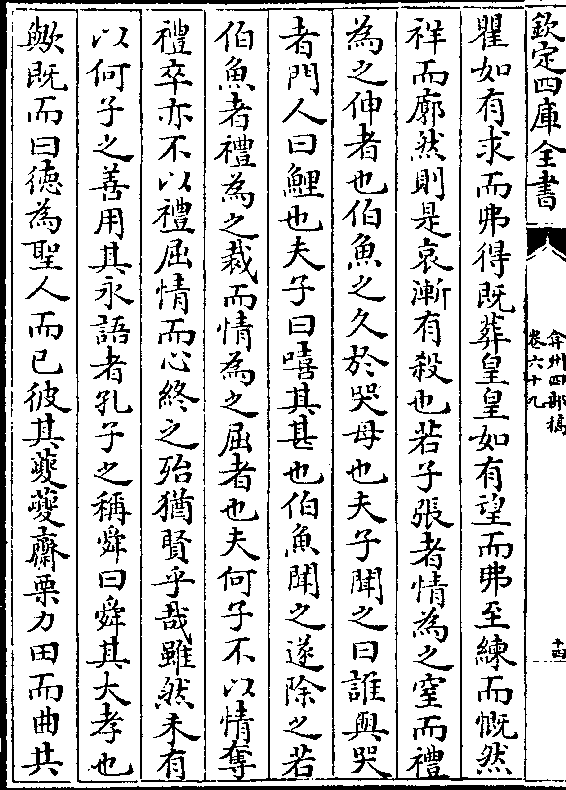 欽定四庫全書
弇州四部稿
卷六十九
十四
瞿如有求而弗得既葬皇皇如有望而弗至練而慨然
祥而廓然則是哀漸有殺也若子張者情為之窒而禮
為之伸者也伯魚之久於哭母也夫子聞之曰誰與哭
者門人曰鯉也夫子曰嘻其甚也伯魚聞之遂除之若
伯魚者禮為之裁而情為之屈者也夫何子不以情奪
禮卒亦不以禮屈情而心終之殆猶賢乎哉雖然未有
以何子之善用其永語者孔子之稱舜曰舜其大孝也
歟既而曰德為聖人而已彼其夔夔齋栗力田而曲共